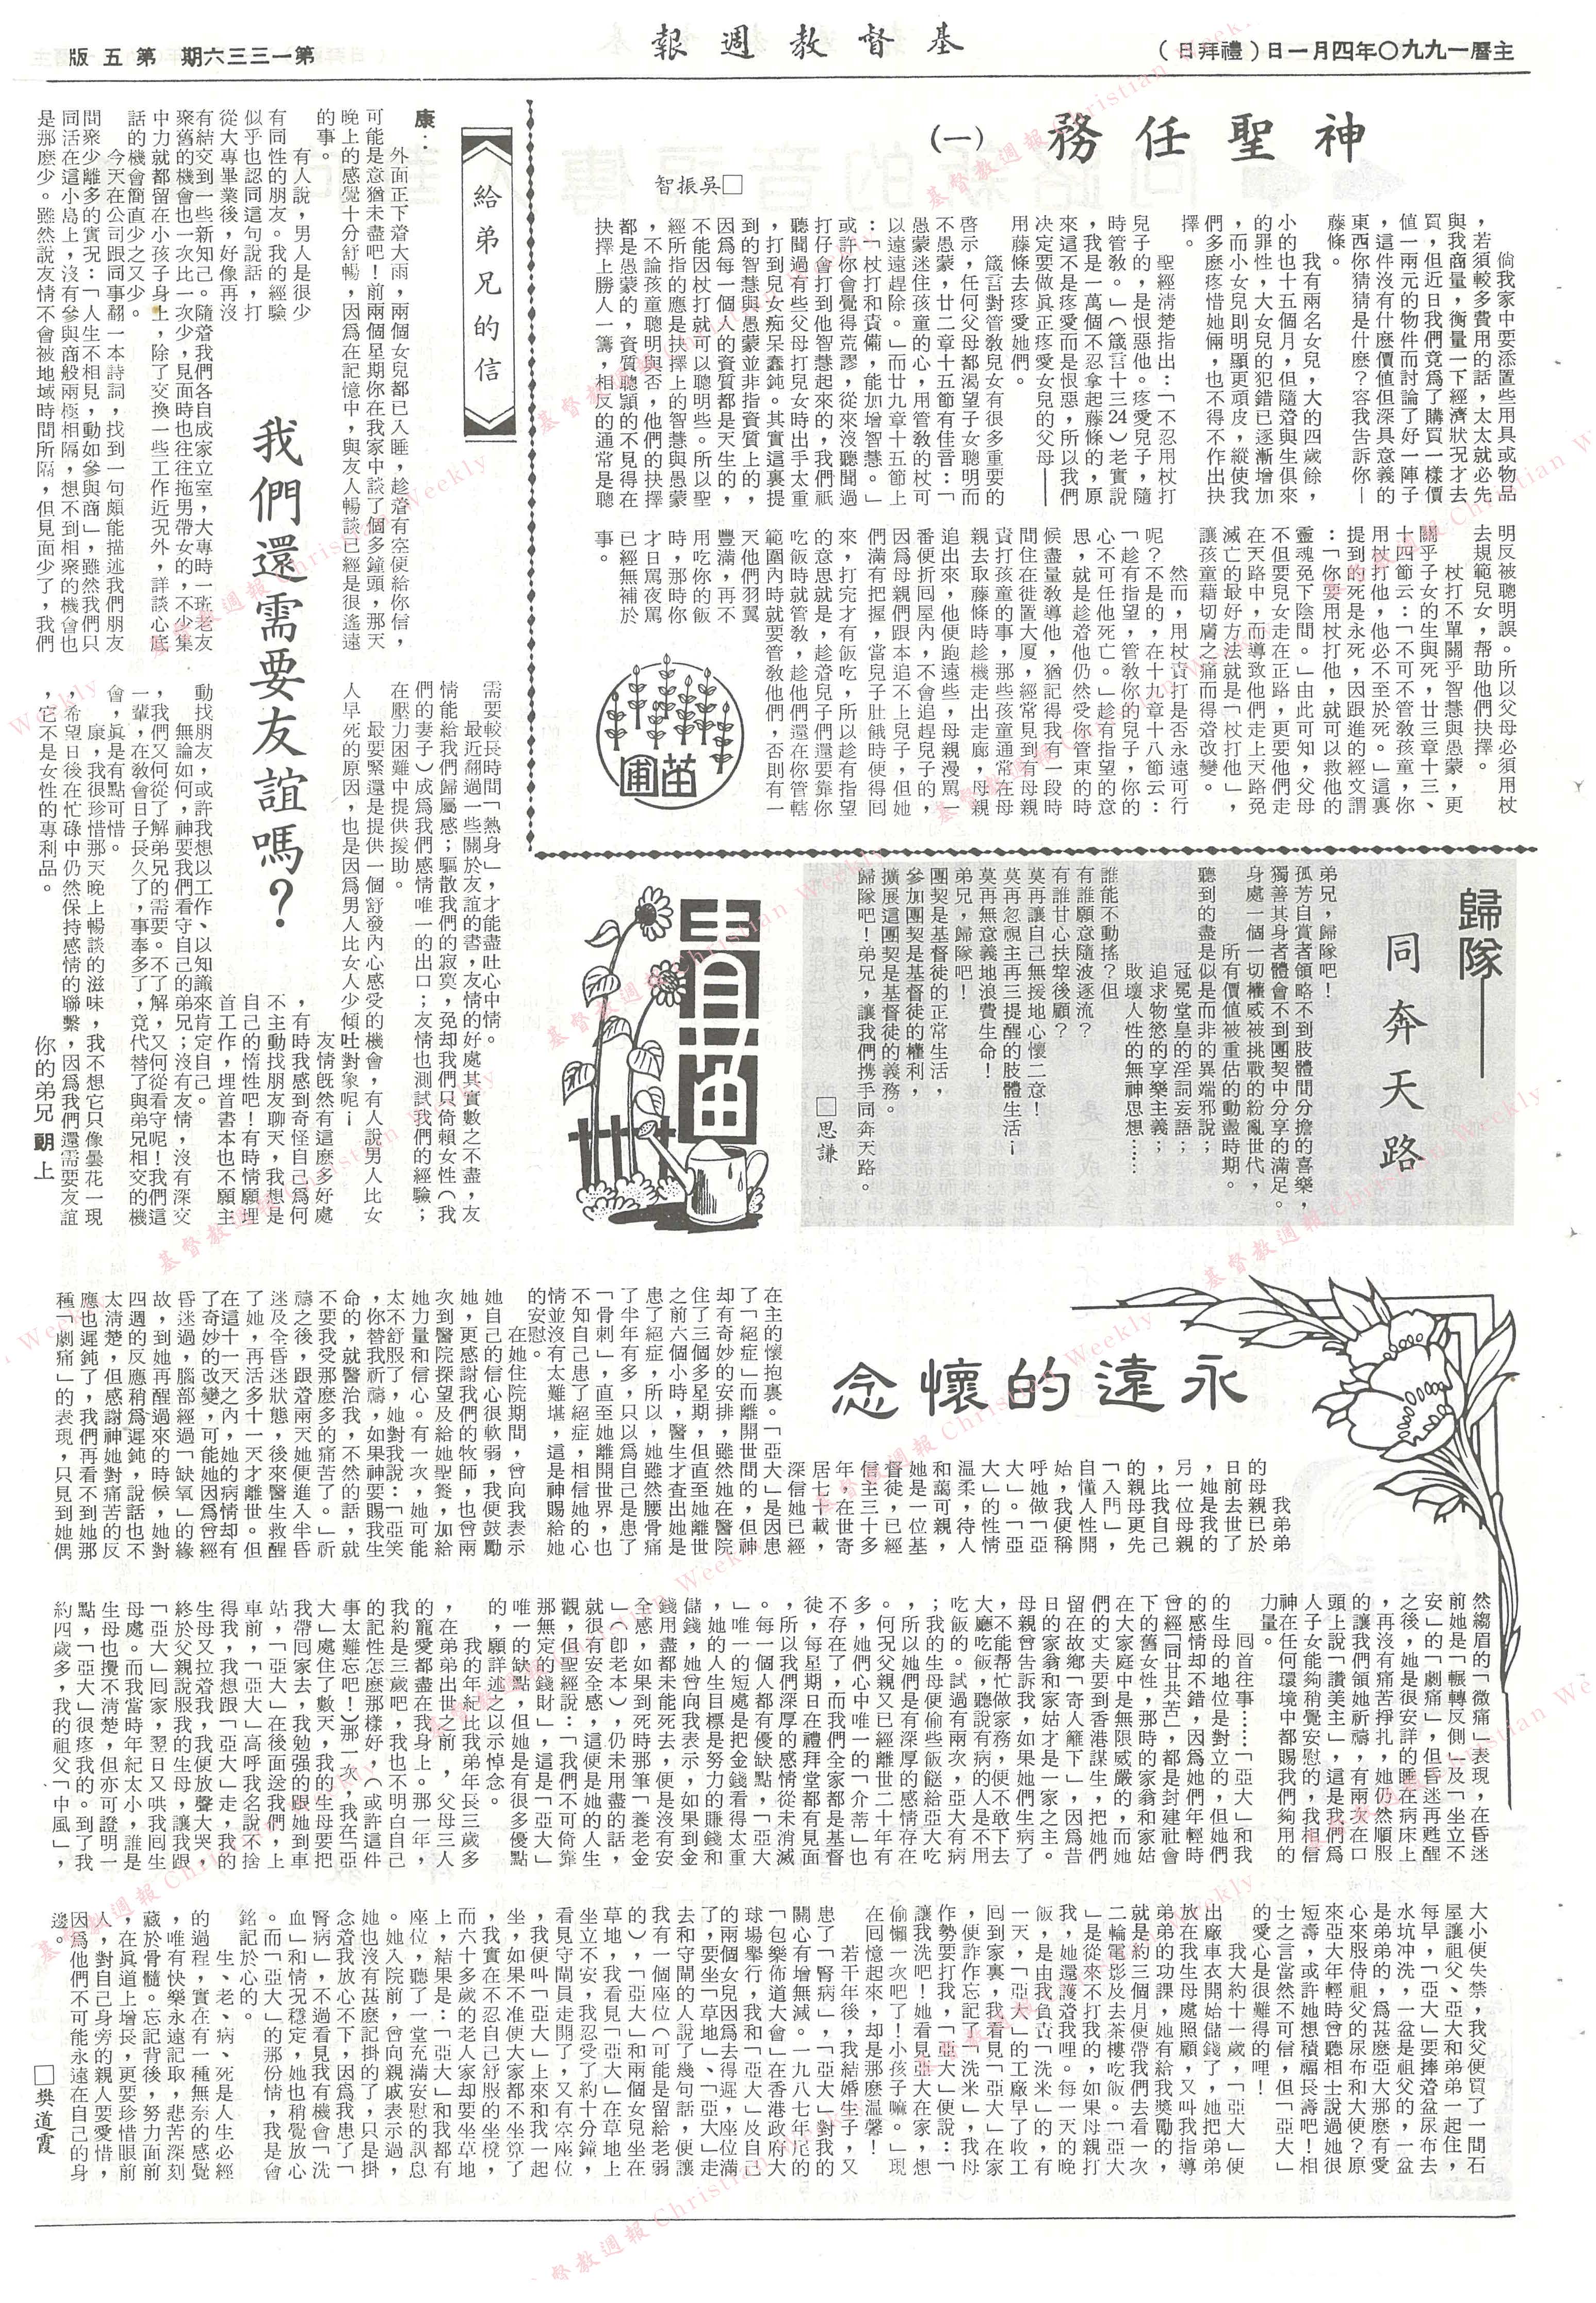 主曆一九九〇年四月一日（禮拜日）
基督教週報
第一三三六期　第五版
神聖任務
（一）
□吳振智
倘我家中要添置些用具或物品
，若須較多費用的話，太太就必先
與我商量，衡量一下經濟狀況才去
買，但近日我們竟爲了購買一樣價
值一兩元的物件而討論了好一陣子
，這件沒有什麼價值但深具意義的
東西你猜猜是什麼？容我告訴你—
藤條。
我有兩名女兒，大的四歲餘，
小的也十五個月，但隨着與生俱來
的罪性，大女兒的犯錯已逐漸增加
，而小女兒則明顯更頑皮，縱使我
們多麼疼惜她倆，也不得不作出抉
擇。
聖經清楚指出：「不忍用杖打
兒子的，是恨惡他。疼愛兒子，隨
時管教。」（箴言十三24）老實說
，我是一萬個不忍拿起藤條的，原
來這不是疼愛而是恨惡，所以我們
决定要做眞正疼愛女兒的父母——
用藤條去疼愛她們。
箴言對管敎兒女有很多重要的
啓示，任何父母都渴望子女聰明而
不愚蒙，廿二章十五節有佳音：「
愚蒙迷住孩童的心，用管敎的杖可
以遠遠趕除。」而廿九章十五節上
：「杖打和責備，能加增智慧。」
或許你會覺得荒謬，從來沒聽聞過
打仔會打到他智慧起來的，我們祇
聽聞過有些父母打兒女時出手太重
，打到兒女痴呆蠢鈍。其實這裏提
到的智慧與愚蒙並非指資質上的，
因爲每一個人的資質都是天生的，
不能因杖打就可以聰明些。所以聖
經所指的應是抉擇上的智慧與愚蒙
，不論孩童聰明與否，他們的抉擇
都是愚蒙的，資質聰穎的不見得在
抉擇上勝人一籌，相反的通常是聰
明反被聰明誤。所以父母必須用杖
去規範兒女，帮助他們抉擇。
杖打不單關乎智慧與愚蒙，更
關乎子女的生與死，廿三章十三、
十四節云：「不可不管敎孩童，你
用杖打他，他必不至於死。」這裏
提到的死是永死，因跟進的經文謂
：「你要用杖打他，就可以救他的
靈魂免下陰間。」由此可知，父母
不但要兒女走在正路，更要他們走
在天路中，而導致他們走上天路免
滅亡的最好方法就是「杖打他」，
讓孩童藉切膚之痛而得着改變。
然而，用杖責打是否永遠可行
呢？不是的，在十九章十八節云：
「趁有指望，管敎你的兒子，你的
心不可任他死亡。」趁有指望的意
思，就是趁着他仍然受你管束的時
候盡量敎導他，猶記得我有一段時
間住在徙置大厦，經常見到有母親
責打孩童的事，那些孩童通常在母
親去取藤條時趁機走出走廊，母親
追出來，他便跑遠些，母親漫罵一
番便折囘屋內，不會追趕兒子的，
因爲母親們跟本追不上兒子，但她
們滿有把握，當兒子肚餓時便得囘
來，打完才有飯吃，所以趁有指望
的意思就是，趁着兒子們還要靠你
吃飯時就管敎，趁他們還在你管轄
範圍內時就要管敎他們，否則有一
天他們羽翼
豐滿，再不
用吃你的飯
時，那時你
才日罵夜罵
已經無補於
事。
苗圃
給弟兄的信
我們還需要友誼嗎？
康：
外面正下着大雨，兩個女兒都已入睡，趁着有空便給你信，
可能是意猶未盡吧！前兩個星期你在我家中談了個多鐘頭，那天
晚上的感覺十分舒暢，因爲在記憶中，與友人暢談已經是很遙遠
的事。
有人說，男人是很少
有同性的朋友。我的經驗
似乎也認同這句說話，打
從大專畢業後，好像再沒
有結交到一些新知己。隨着我們各自成家立室，大專時一班老友
聚舊的機會也一次比一次少，見面時也往往拖男帶女的，不少集
中力就都留在小孩子身上，除了交換一些工作近況外，詳談心底
話的機會簡直少之又少。
今天在公司跟同事翻一本詩詞，找到一句頗能描述我們朋友
問聚少離多的實況：「人生不相見，動如參與商」，雖然我們只
同活在這小島上，沒有參與商般兩極相隔，想不到相聚的機會也
是那麼少。雖然說友情不會被地域時間所隔，但見面少了，我們
需要較長時間「熱身」，才能盡吐心中情。
最近翻過一些關於友誼的書，友情的好處其實數之不盡，友
情能給我們歸屬感；驅散我們的寂寞，免却我們只倚賴女性（我
們的妻子）成爲我們感情唯一的出口；友情也測試我們的經驗；
在壓力困難中提供援助。
最要緊還是提供一個舒發內心感受的機會，有人說男人比女
人早死的原因，也是因爲男人比女人少傾吐對象呢！
友情旣然有這麼多好處
，有時我感到奇怪自己爲何
不主動找朋友聊天，我想是
自己的惰性吧！有時情願埋
首工作，埋首書本也不願主
動找朋友，或許我想以工作、以知識來肯定自己。
無論如何，神要我們看守自己的弟兄；沒有友情，沒有深交
，我們又何從了解弟兄的需要。不了解，又何從看守呢！我們這
一輩，在敎會日子長久了，事奉多了，竟代替了與弟兄相交的機
會，眞是有點可惜。
康，我很珍惜那天晚上暢談的滋味，我不想它只像曇花一現
，希望日後在忙碌中仍然保持感情的聯繫，因爲我們還需要友誼
，它不是女性的專利品。
你的弟兄　朗上
歸隊——
同奔天路
弟兄，歸隊吧！
孤芳自賞者領略不到肢體間分擔的喜樂，
獨善其身者體會不到團契中分享的滿足。
身處一個一切權威被挑戰的紛亂世代，
所有價値被重估的動盪時期。
聽到的盡是似是而非的異端邪說；
冠冕堂皇的淫詞妄語；
追求物慾的享樂主義；
敗壞人性的無神思想……
誰能不動搖？但
有誰願意隨波逐流？
有誰甘心扶犂後顧？
莫再讓自己無援地心懷二意！
莫再忽視主再三提醒的肢體生活！
莫再無意義地浪費生命！
弟兄，歸隊吧！
團契是基督徒的正常生活，
參加團契是基督徒的權利，
擴展這團契是基督徒的義務。
歸隊吧！弟兄，讓我們携手同奔天路。
□思謙
青苗
永遠的懷念
我弟弟
的母親已於
日前去世了
，她是我的
另一位母親
，比我自己
的親母更先
「入門」，
自懂人性開
始，我便稱
呼她做「亞
大」。「亞
大」的性情
溫柔，待人
和藹可親，
她是一位基
督徒，已經
信主三十多
年，在世寄
居七十載，
深信她已經
在主的懷抱裏。「亞大」是因患
了「絕症」而離開世間的，但神
却有奇妙的安排，雖然她在醫院
住了三個多星期，但直至她離世
之前六個小時，醫生才查出她是
患了絕症，所以，她雖然腰骨痛
了半年有多，只以爲自己是患了
「骨刺」，直至她離開世界，也
不知自己患了絕症，相信她的心
情並沒有太難堪，這是神賜給她
的安慰。
在她住院期間，曾向我表示
她自己的信心很軟弱，我便鼓勵
她，更感謝我們的牧師，也曾兩
次到醫院探望及給她聖餐，加給
她力量和信心。有一次，她可能
太不舒服了，她對我說：「亞笑
，你替我祈禱，如果神要賜我生
命的，就醫治我，不然的話，就
不要我受那麼多的痛苦了。」祈
禱之後，跟着兩天她便進入半昏
迷及全昏迷狀態，後來醫生救醒
了她，再活多十一天才離世。但
在這十一天之內，她的病情却有
了奇妙的改變，可能她因爲曾經
昏迷過，腦部經過「缺氧」的緣
故，到她再醒過來的時候，她對
四週的反應稍爲遲鈍，說話也不
太淸楚，但感謝神她對痛苦的反
應也遲鈍了，我們再看不到她那
種「劇痛」的表現，只見到她偶
然縐眉的「微痛」表現，在昏迷
前她是「輾轉反側」及「坐立不
安」的「劇痛」，但昏迷再甦醒
之後，她是很安詳的睡在病床上
，再沒有痛苦掙扎，她仍然順服
的讓我們領她祈禱，有兩次在口
頭上說「讚美主」，這是我們爲
人子女能夠稍覺安慰的，我相信
神在任何環境中都賜我們夠用的
力量。
囘首往事……「亞大」和我
的生母的地位是對立的，但她們
的感情却不錯，因爲她們年輕時
曾經「同甘共苦」，都是封建社會
下的舊女性，那時的家翁和家姑
在大家庭中是無限威嚴的，而她
們的丈夫要到香港謀生，把她們
留在故鄉「寄人籬下」，因爲昔
日的家翁和家姑才是一家之主。
母親曾告訴我，如果她們生病了
，不能帮忙做家務，便不敢下去
大廳吃飯，聽說有病的人是不用
吃飯的。試過有兩次，亞大有病
；我的生母便偷些飯餸給亞大吃
，所以她們是有深厚的感情存在
。何況父親又已經離世二十年有
多，她們心中唯一的「介蒂」也
不存在了，而我們全家都是基督
徒，每星期日在禮拜堂都有見面
，所以我們深厚的感情從未消滅
。每一個人都有優缺點，「亞大
」唯一的短處是把金錢看得太重
，她的人生目標是努力的賺錢和
儲錢，她曾向我表示，如果到金
錢用盡都未能死去，便是沒有安
全感，如果到死時那筆「養老金
」（即老本），仍未用盡的話，
就很有安全感，這便是她的人生
觀，但聖經說：「我們不可倚靠
那無定的錢財」，這是「亞大」
唯一的缺點，但她是有很多優點
的，願詳述之以示悼念。
我的年紀比我弟年長三歲多
，在弟弟出世之前，父母三人
的寵愛都盡在我身上。那一年，
我約是三歲吧，我也不明白自己
的記性怎麼那樣好，（或許這件
事太難忘吧！）那一次，我在「亞
大」處住了數天，我的生母要把
我帶囘家去，我勉强的跟她到車
站，「亞大」在後面送我們，上
車前，「亞大」高呼我名說不捨
得我，我想跟「亞大」走，我的
生母又拉着我，我便放聲大哭，
終於父親說服我的生母，讓我跟
「亞大」囘家，翌日又哄我囘生
母處。而我當時年紀太小，誰是
生母也攪不淸楚，但亦可證明一
點，「亞大」很疼我的。到了我
約四歲多，我的祖父「中風」，
大小便失禁，我父便買了一間石
屋讓祖父、亞大和弟弟一起住，
每早，「亞大」要捧着盆尿布去
水坑冲洗，一盆是祖父的，一盆
是弟弟的，爲甚麼亞大那麼有愛
心來服侍祖父的尿布和大便？原
來亞大年輕時曾聽相士說過她很
短壽，或許她想積福長壽吧！相
士之言當然不可信，但「亞大」
的愛心是很難得的哩！
我大約十一歲，「亞大」便
出廠車衣開始儲錢了，她把弟弟
放在我生母處照顧，又叫我指導
弟弟的功課，她有給我獎勵的，
就是約三個月便帶我們去看一次
二輪電影及去茶樓吃飯。「亞大
」是從來不打我的，如果母親打
我，她還護着我哩。每一天的晚
飯，是由我負責「洗米」的，有
一天，「亞大」的工廠早了收工
囘到家裏，我看見「亞大」在家
，便詐作忘記了「洗米」，我母
作勢要打我，「亞大」便說：「
讓我洗吧！她看見亞大在家，想
偷懶一次吧了！小孩子嘛。」現
在囘憶起來，却是那麼溫馨！
若干年後，我結婚生子，又
患了「腎病」，「亞大」對我的
關心有增無減。一九八七年尾的
「包樂佈道大會」在香港政府大
球場舉行，我和「亞大」及自己
的兩個女兒因爲去得遲，座位滿
了，要坐「草地」，「亞大」走
去和守閘的人說了幾句話，便讓
我有一個座位（可能是留給老弱
的），「亞大」和兩個女兒坐在
草地，我看見「亞大」在草地上
坐立不安，我忍受了約十分鐘，
看見守閘員走開了，又有空座位
，我便叫「亞大」上來和我一起
坐，如果不准便大家都不坐算了
，我實在不忍自己舒服的坐櫈，
而六十多歲的老人家却要坐草地
上，結果是：「亞大」和我都有
座位，聽了一堂充滿安慰的訊息
。她入院前，曾向親戚表示過，
她也沒有甚麼記掛的了，只是掛
念着我放心不下，因爲我患了「
腎病」，不過看見我有機會「洗
血」和情況穩定，她也稍覺放心
。而「亞大」的那份情，我是會
銘記於心的。
生、老、病、死是人生必經
的過程，實在有一種無奈的感覺
，唯有快樂永遠記取，悲苦深刻
藏於骨髓。忘記背後，努力面前
，在眞道上增長，更要珍惜眼前
人，對自己身旁的親人要愛惜，
因爲他們不可能永遠在自己的身
邊。
□樊道霞
基督教週報 Christian Weekly